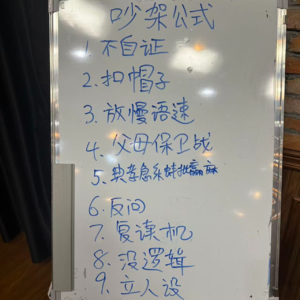 吵架公式
1. 不自证
2. 扣帽子
3. 放慢语速
4. 父母保卫战
5.
6. 反问
7. 复读机
8. 没逻辑
9. 立人设